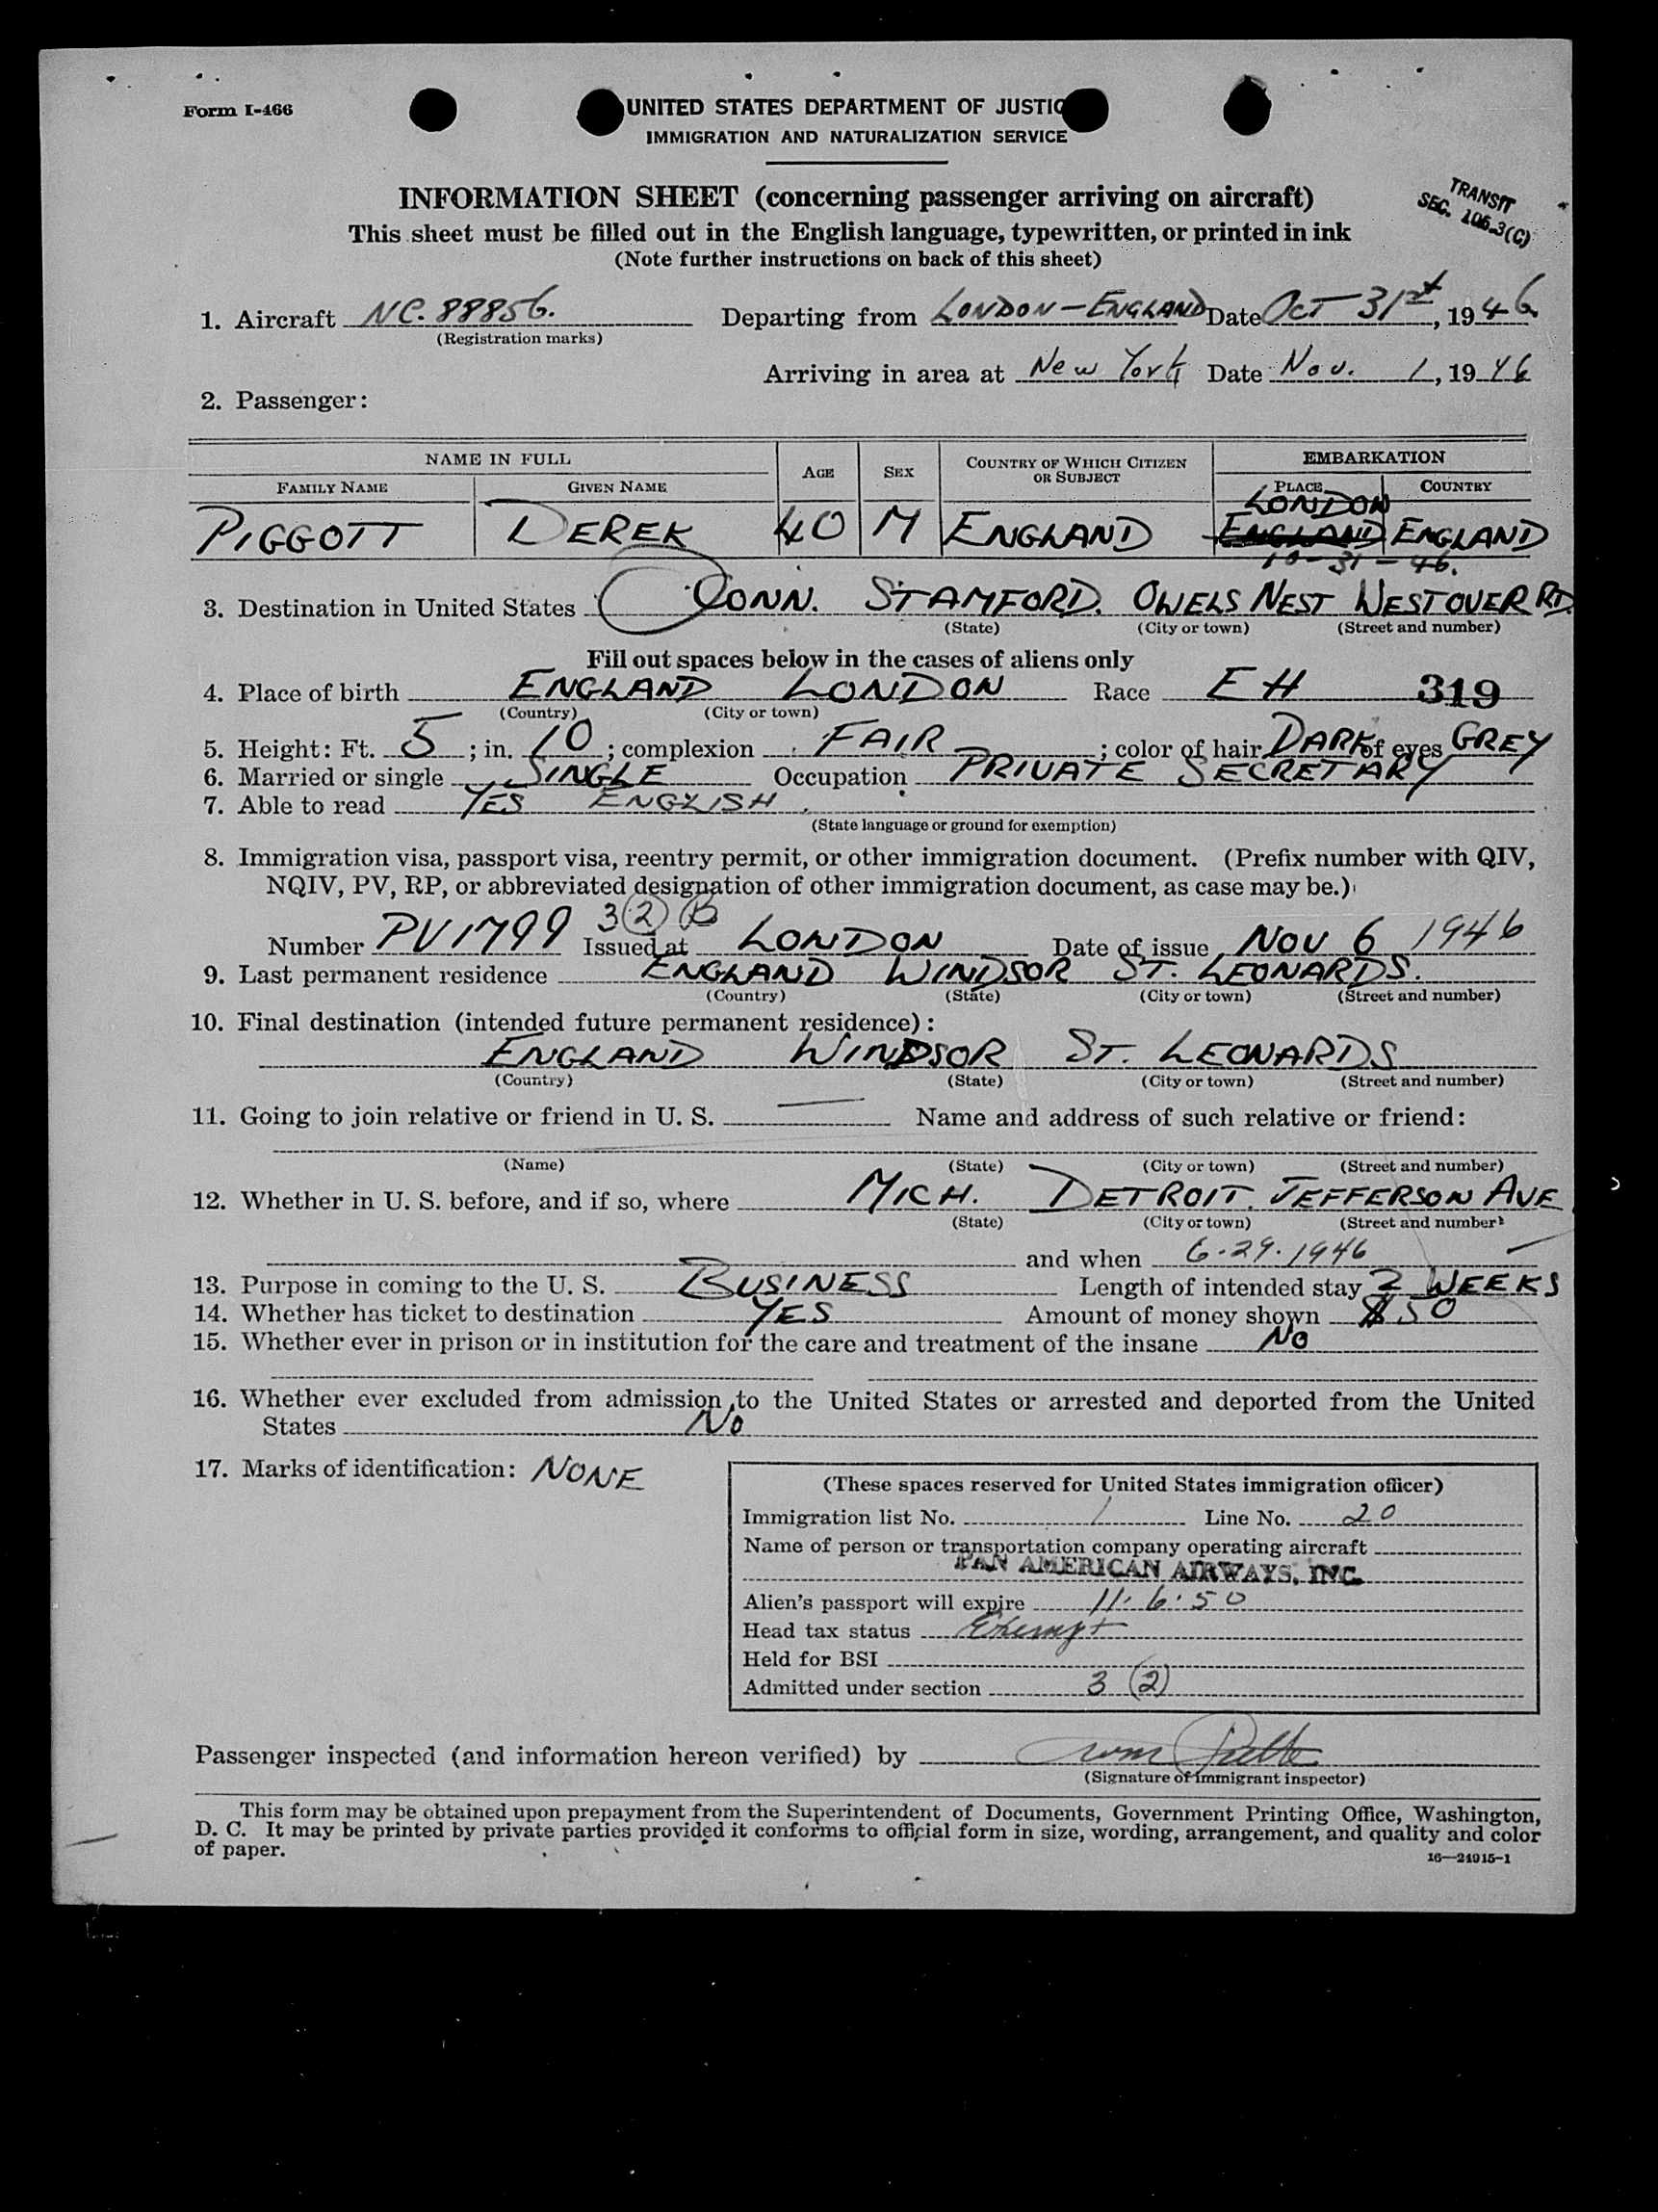 Form I-466
UNITED STATES DEPARTMENT OF JUSTIC
IMMIGRATION AND NATURALIZATION SERVICE
INFORMATION SHEET (concerning passenger arriving on aircraft)
TRANSIT
SEC. 106.3(C)
This sheet must be filled out in the English language, typewritten, or printed in ink
(Note further instructions on back of this sheet)
1. Aircraft NC. 88856. Departing from LONDON - ENGLAND Date OCT 31st, 1946
(Registration marks)
Arriving in area at New York Date Nov. 1, 1946
2. Passenger:
NAME IN FULL AGE SEX COUNTRY OF WHICH CITIZEN OR SUBJECT EMBARKATION
FAMILY NAME GIVEN NAME PLACE COUNTRY
LONDON
PIGGOTT DEREK 40 M ENGLAND ENGLAND ENGLAND
10-31-46.
3. Destination in United States CONN. STAMFORD. OWELS NEST WESTOVER RD.
(State) (City or town) (Street and number)
Fill out spaces below in the cases of aliens only
4. Place of birth ENGLAND LONDON Race EH 319
(Country) (City or town)
5. Height: Ft. 5; in. 10; complexion FAIR; color of hair DARK of eyes GREY
6. Married or single SINGLE Occupation PRIVATE SECRETARY
7. Able to read YES ENGLISH
(State language or ground for exemption)
8. Immigration visa, passport visa, reentry permit, or other immigration document. (Prefix number with QIV,
NQIV, PV, RP, or abbreviated designation of other immigration document, as case may be.)
3 (2) B
Number PV1799 Issued at LONDON Date of issue NOV 6 1946
9. Last permanent residence ENGLAND WINDSOR ST. LEONARDS.
(Country) (State) (City or town) (Street and number)
10. Final destination (intended future permanent residence):
ENGLAND WINDSOR ST. LEONARDS
(Country) (State) (City or town) (Street and number)
11. Going to join relative or friend in U. S. — Name and address of such relative or friend:
(Name) (State) (City or town) (Street and number)
12. Whether in U. S. before, and if so, where MICH. DETROIT. JEFFERSON AVE
(State) (City or town) (Street and number)
and when 6.29.1946
13. Purpose in coming to the U. S. BUSINESS Length of intended stay 2 WEEKS
14. Whether has ticket to destination YES Amount of money shown $50
15. Whether ever in prison or in institution for the care and treatment of the insane NO
16. Whether ever excluded from admission to the United States or arrested and deported from the United
States NO
17. Marks of identification: NONE
(These spaces reserved for United States immigration officer)
Immigration list No. 1 Line No. 20
Name of person or transportation company operating aircraft
PAN AMERICAN AIRWAYS, INC.
Alien's passport will expire 11.6.50
Head tax status Exempt
Held for BSI
Admitted under section 3 (2)
Passenger inspected (and information hereon verified) by
(Signature of immigrant inspector)
This form may be obtained upon prepayment from the Superintendent of Documents, Government Printing Office, Washington,
D. C. It may be printed by private parties provided it conforms to official form in size, wording, arrangement, and quality and color
of paper.
16—24915-1